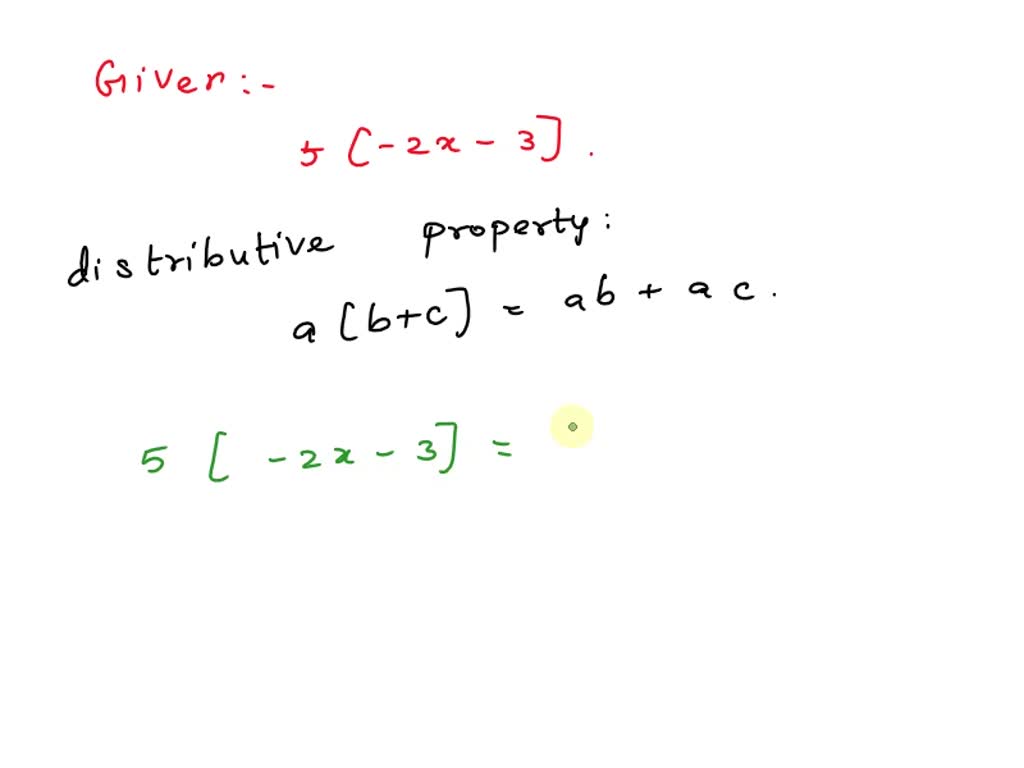 Given:-
5 [-2x - 3].
distributive property:
a [b+c] = ab + a c.
5 [ -2x - 3] =